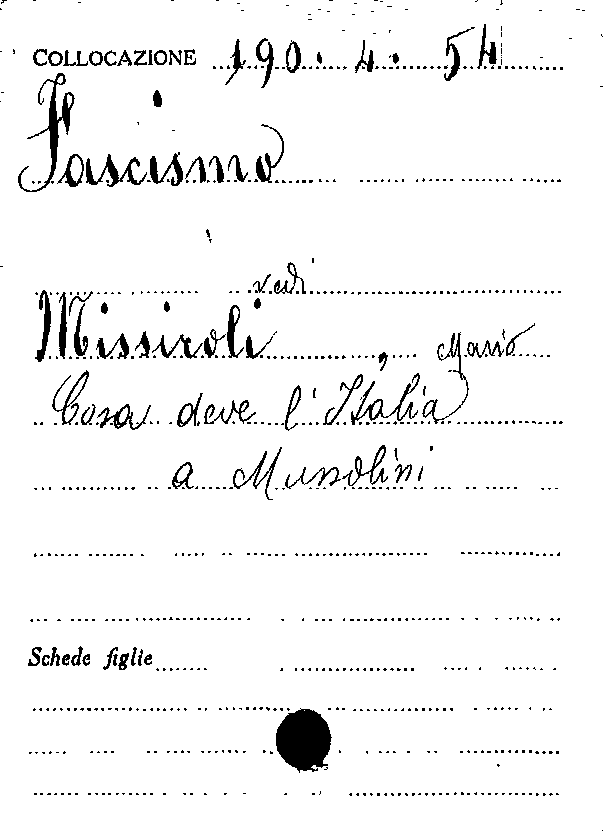 COLLOCAZIONE 190. 4. 54
Fascismo
vedi
Missiroli, Mario
Cosa deve l'Italia
a Mussolini
Schede figlie